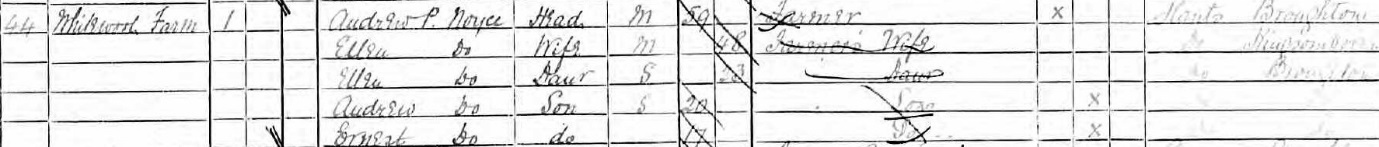 44 Whitewood Farm 1 Andrew P. Noyce Head M 59 Farmer x Hants Broughton
Ellen Do Wife M 48 Farmer's Wife Do
Ellen Do Daur S 23 Daur Do Broughton
Andrew Do Son S 20 Son x
Ernest Do do 17 Do x